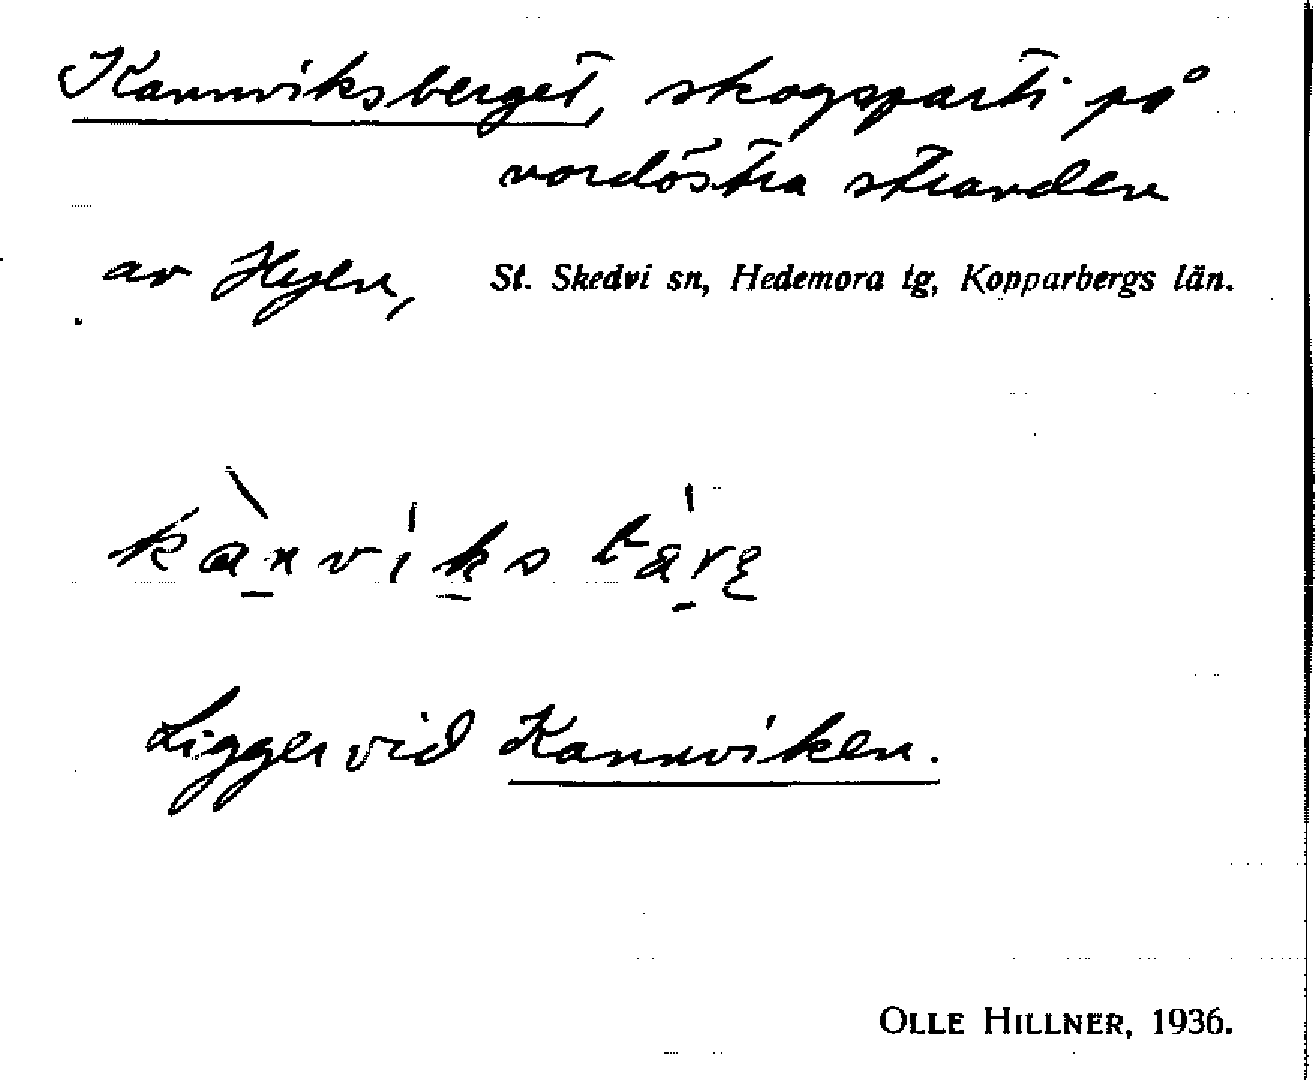 Kannviksberget, skogsparti på
nordöstra stranden
av Hyen, St. Skedvi sn, Hedemora tg, Kopparbergs län.
kànviksbärg
Ligger vid Kannviken.
OLLE HILLNER, 1936.